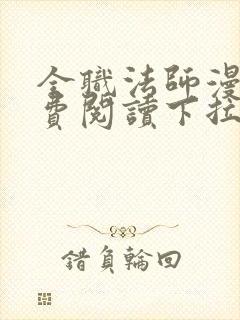 全職法師漫
費閱讀下拉
錯負輪回